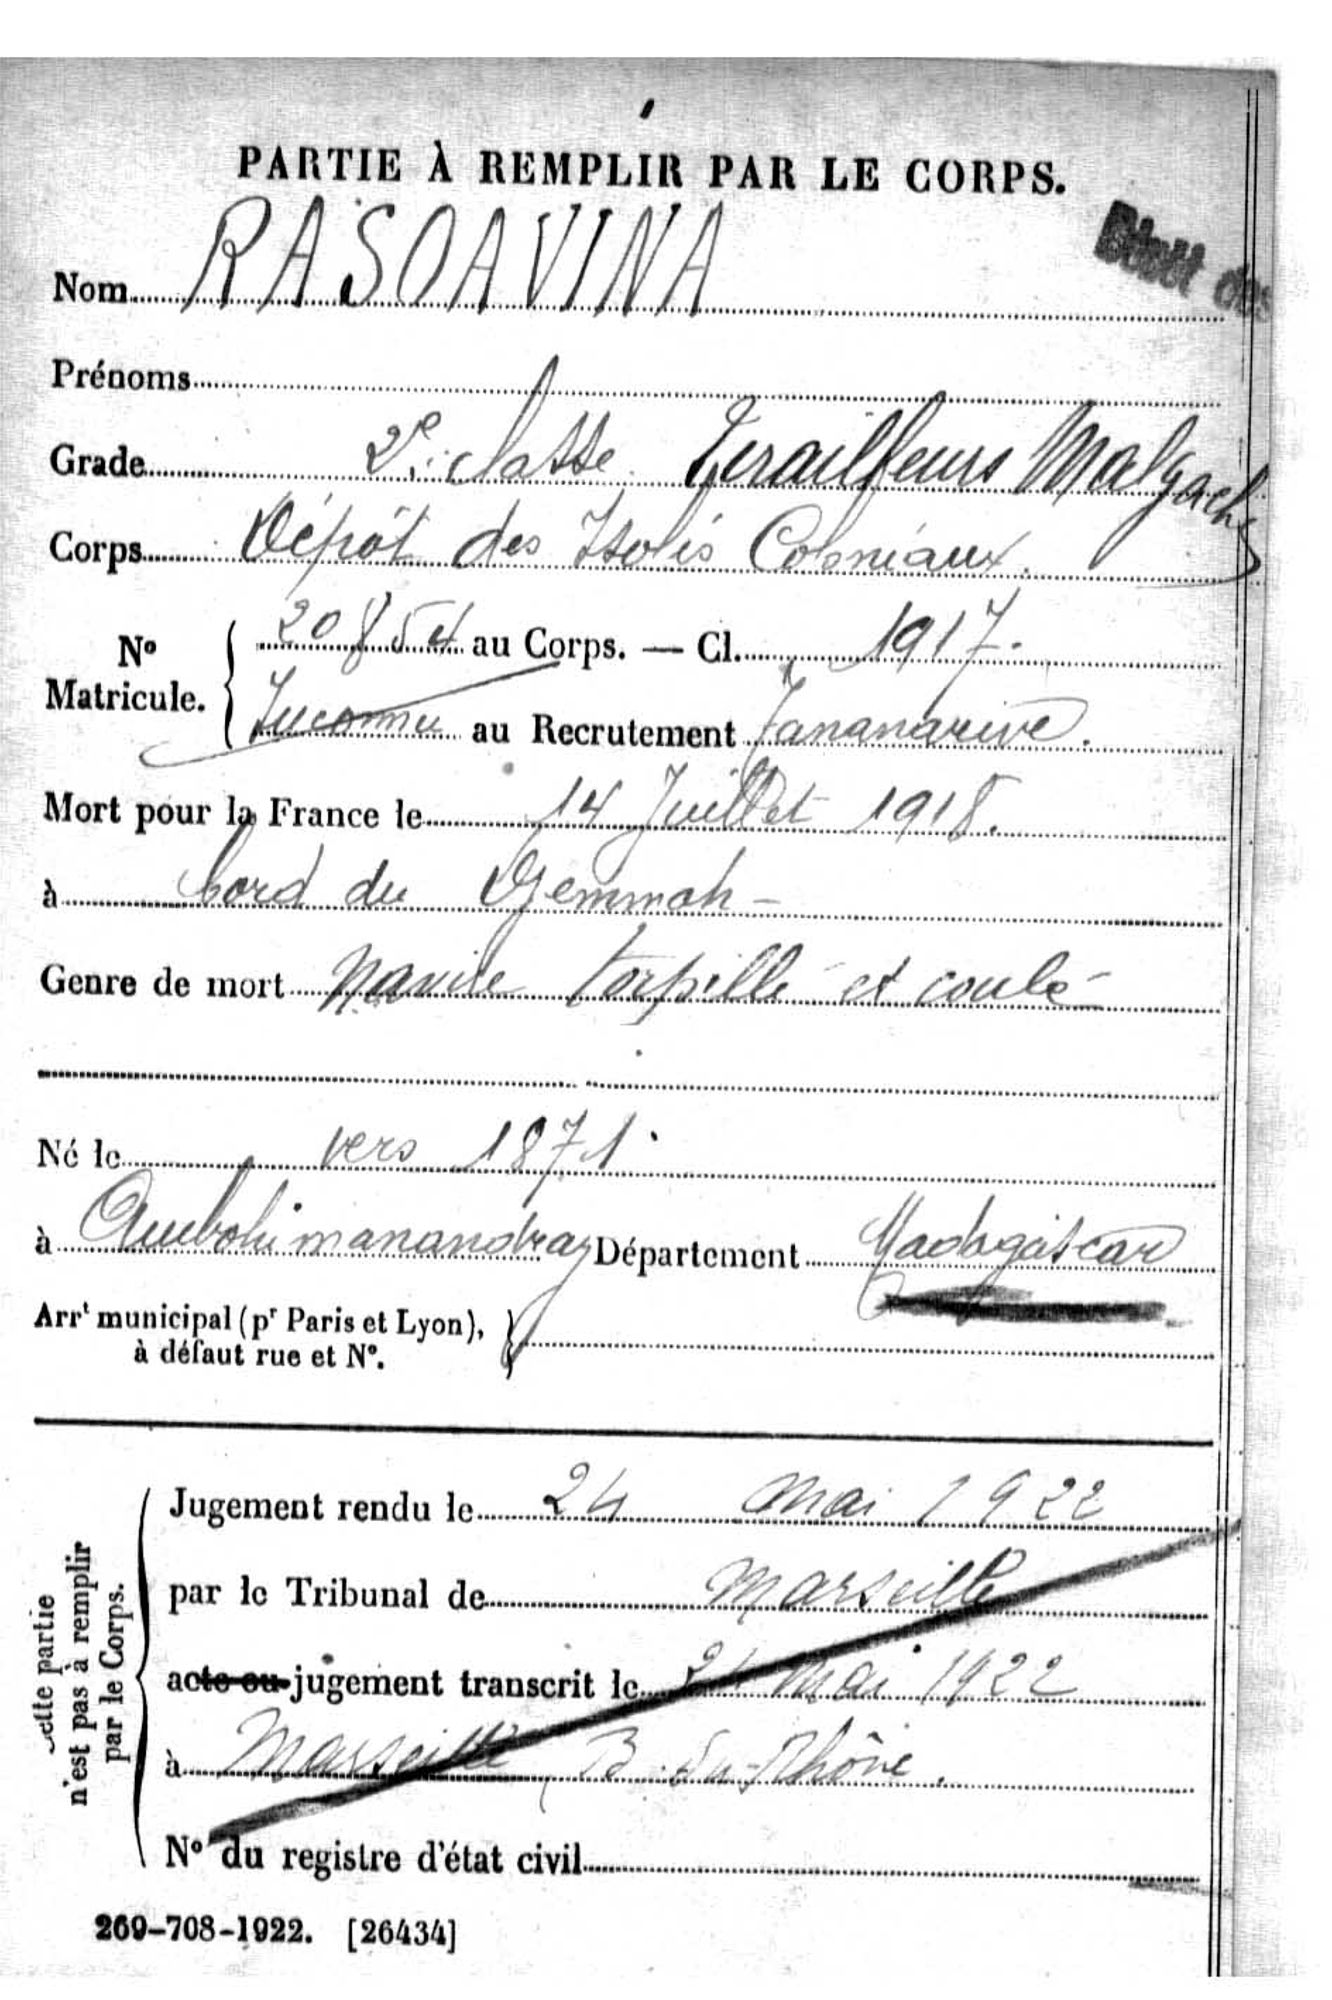 PARTIE À REMPLIR PAR LE CORPS.
Nom RASOAVINA
Dépôt des
Prénoms
Grade 2e classe Tirailleurs Malgaches
Corps Dépôt des Isolés Coloniaux.
No Matricule. { 20854 au Corps. — Cl. 1917.
Inconnu au Recrutement Tananarive.
Mort pour la France le 14 Juillet 1918.
à bord du Djemmah -
Genre de mort Navire torpillé et coulé
Né le vers 1871.
à Ambohimanandray Département Madagascar
Arrt municipal (pr Paris et Lyon), }
à défaut rue et No.
Cette partie
n'est pas à remplir
par le Corps.
Jugement rendu le 24 mai 1922
par le Tribunal de Marseille
acte ou jugement transcrit le 24 mai 1922
à Marseille, B.-du-Rhône.
No du registre d'état civil
269-708-1922. [26434]